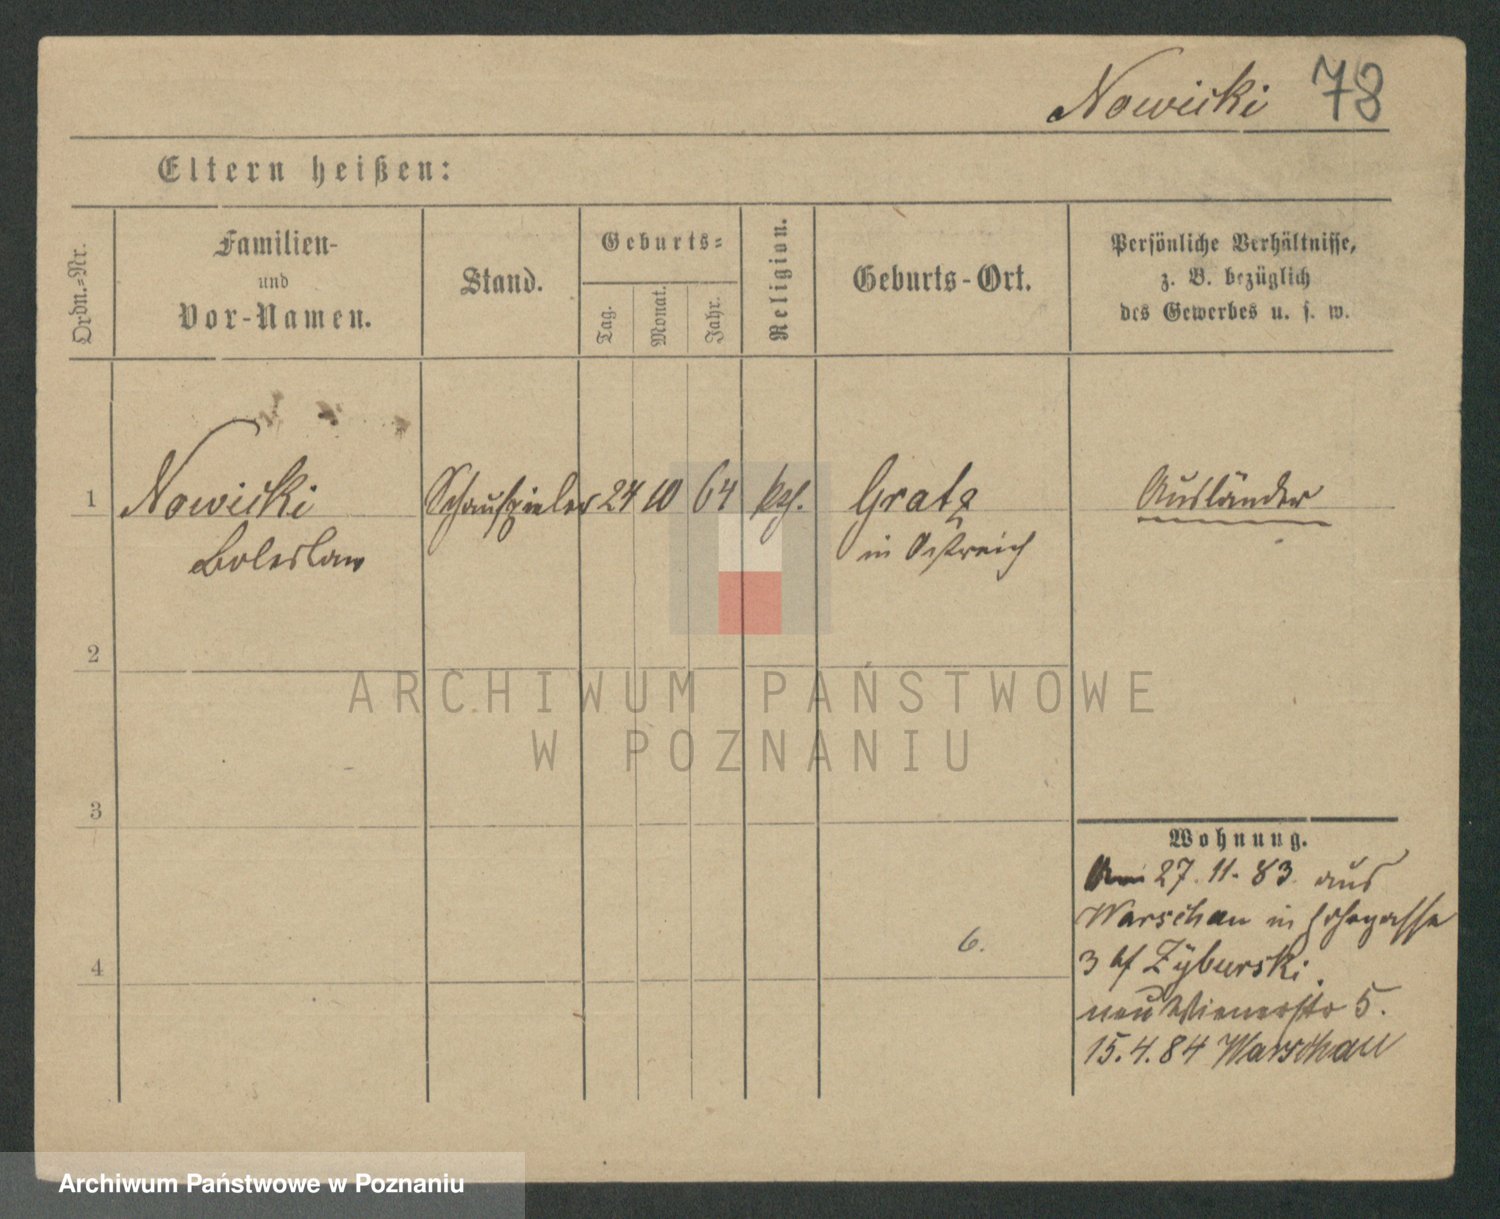 Nowicki 78
Eltern heißen:
Ordn.-Nr.
Familien-
und
Vor-Namen.
Stand.
Geburts-
Tag.
Monat.
Jahr.
Religion.
Geburts-Ort.
Persönliche Verhältnisse,
z. B. bezüglich
des Gewerbes u. s. w.
1 Nowicki Schauspieler 24 10 64 kth. Gratz Ausländer
Boleslaw in Östreich
2
ARCHIWUM PAŃSTWOWE
W POZNANIU
3
Wohnung.
27. 11. 83 aus
Warschau in
6.
3 bf Zyburski
4
neu Wienerstr 5.
15. 4. 84 Warschau
Archiwum Państwowe w Poznaniu